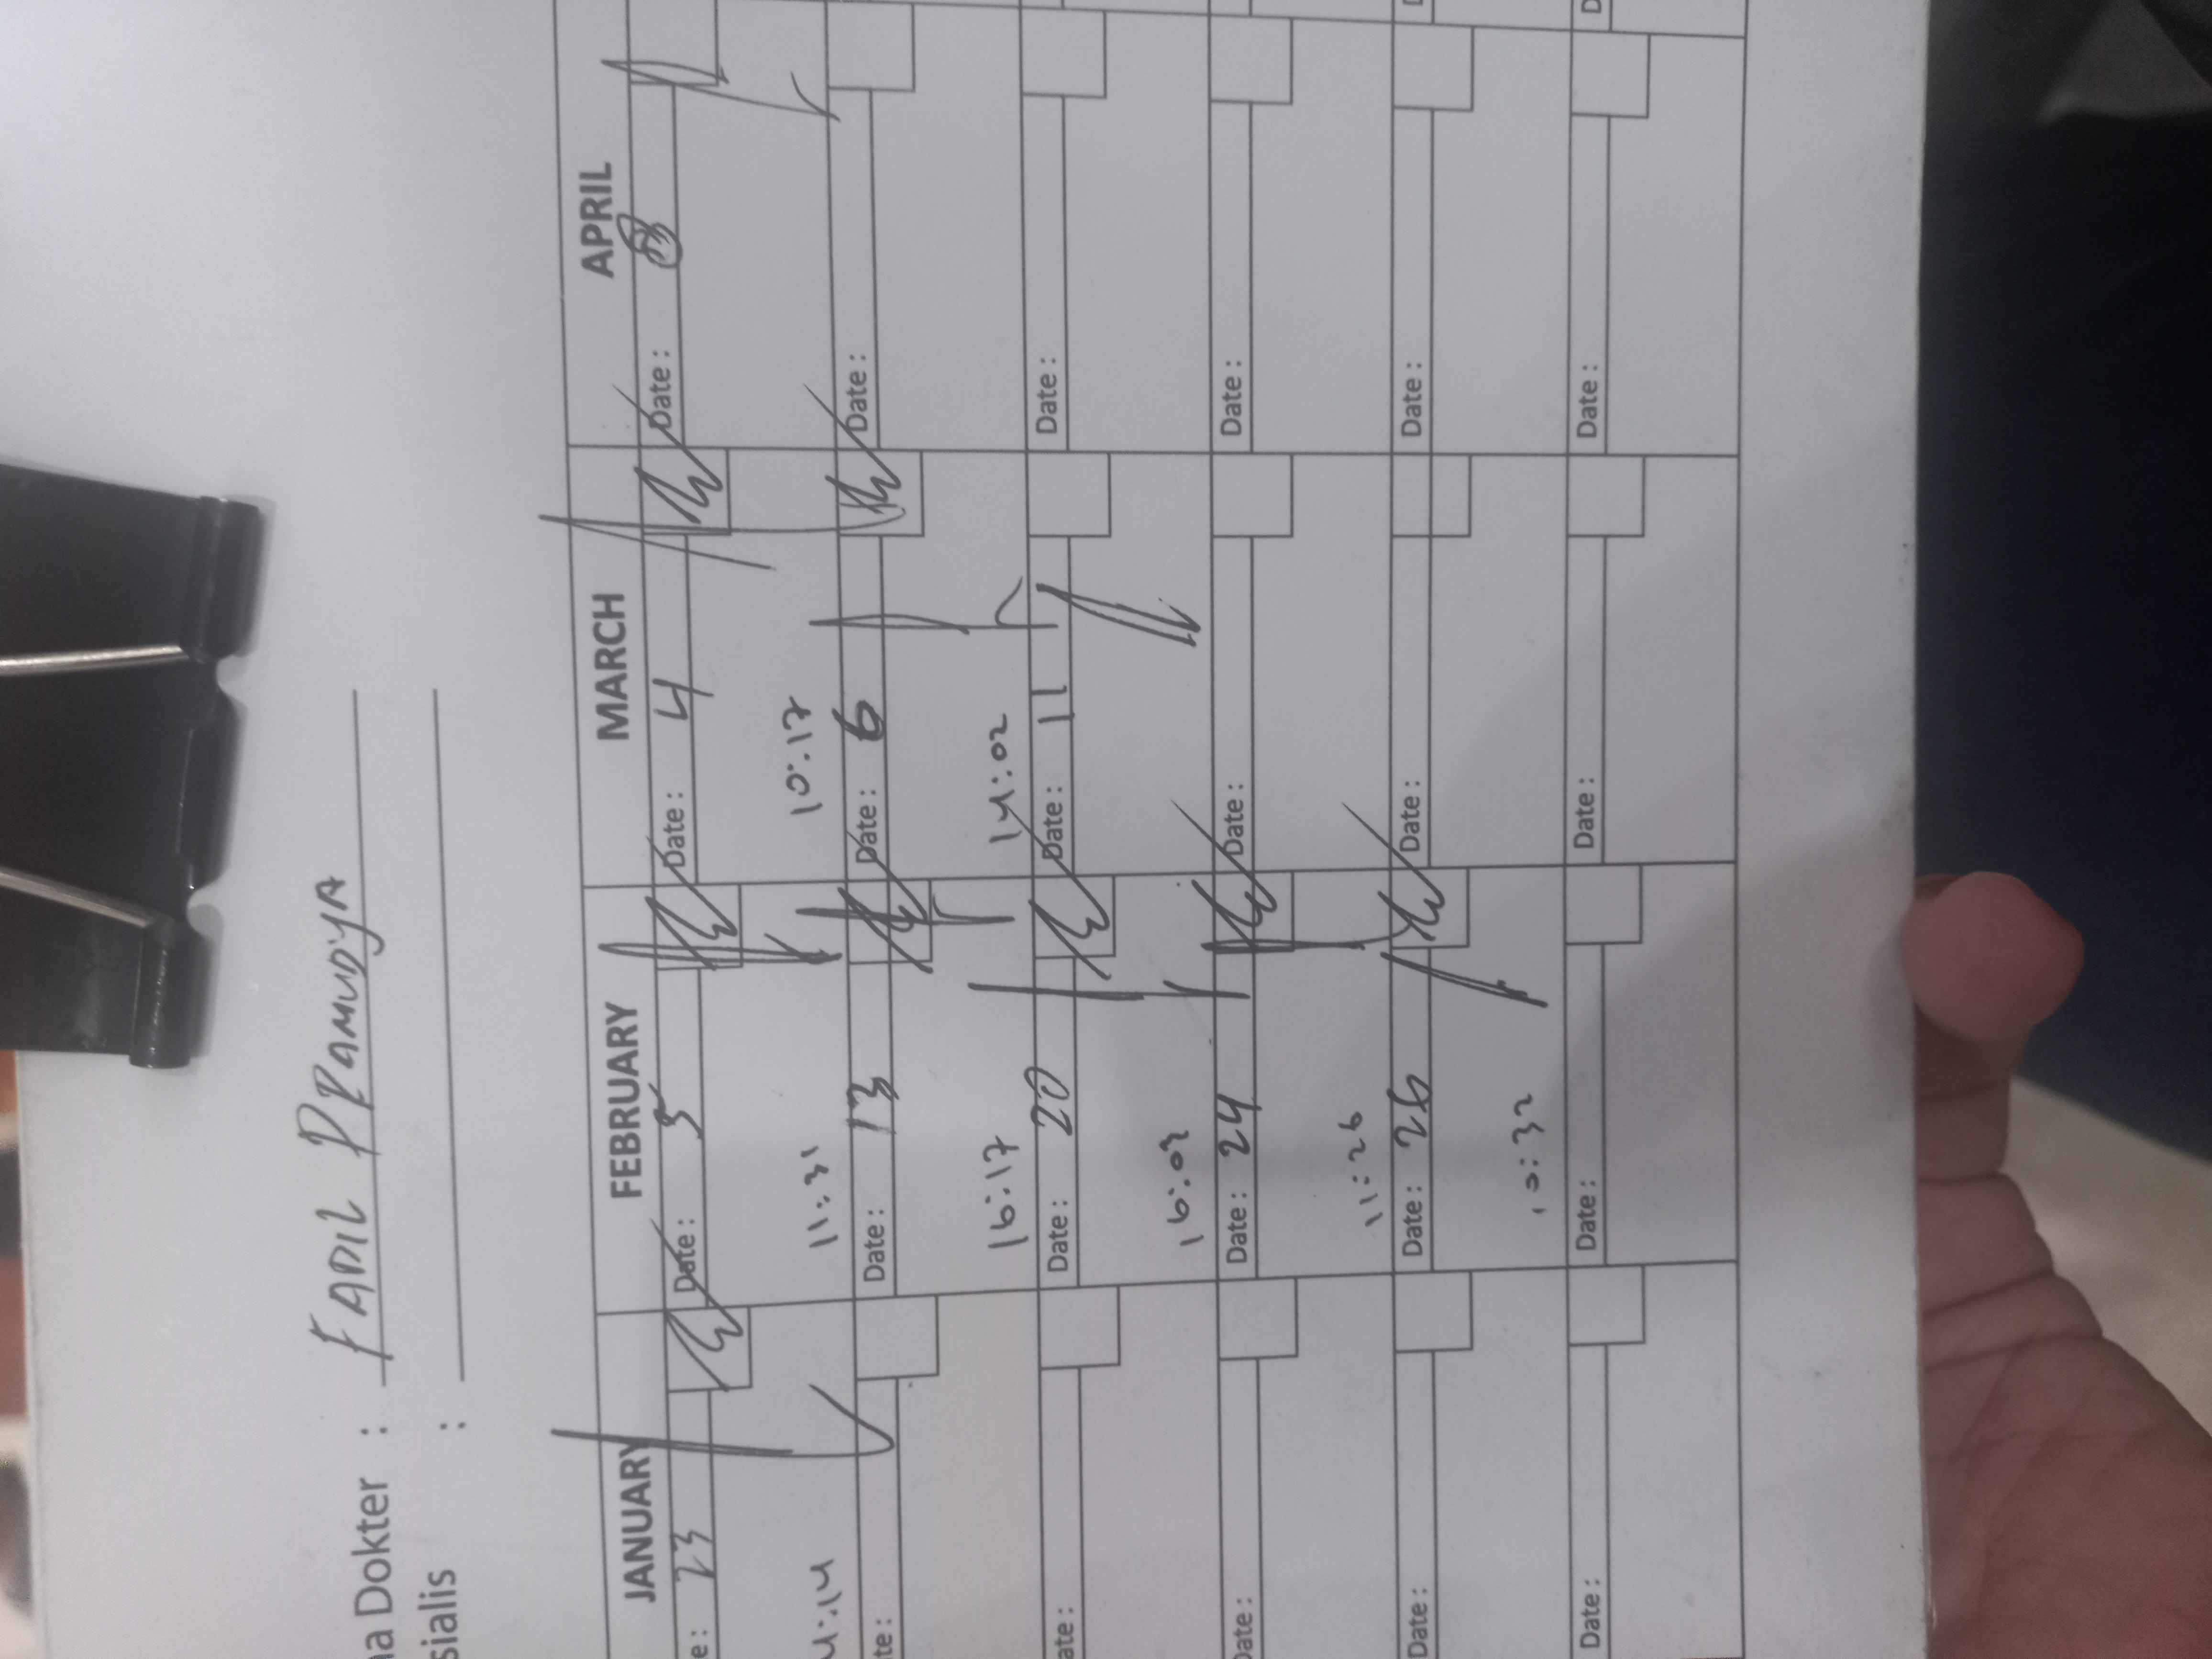 na Dokter : FADIL PRAMUDYA
sialis :
JANUARY FEBRUARY MARCH APRIL
e : 23 Date : 5 Date : 4 Date : 8
4:14 11:31 10:17
te : Date : 13 Date : 6 Date :
16:17 14:02
ate : Date : 20 Date : 11 Date :
16:03
Date : Date : 24 Date : Date :
11:26
Date : Date : 26 Date : Date :
10:32
Date : Date : Date : Date :